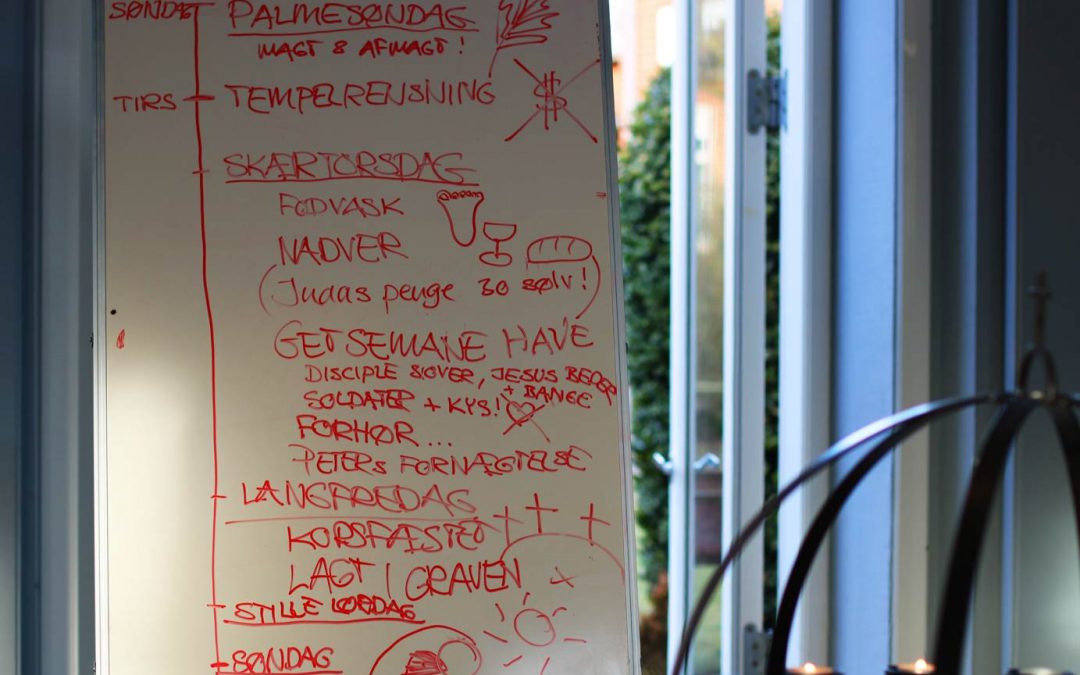 SØNDAG PALMESØNDAG
MAGT & AFMAGT!
TIRS TEMPELRENSNING $
SKÆRTORSDAG
FODVASK
NADVER
(Judas penge 30 sølv!)
GETSEMANE HAVE
DISCIPLE SOVER, JESUS BEDER
+ BANGE
SOLDATER + KYS!
FORHØR...
PETERS FORNÆGTELSE
LANGFREDAG
KORSFÆSTET
LAGT I GRAVEN
STILLE LØRDAG
SØNDAG